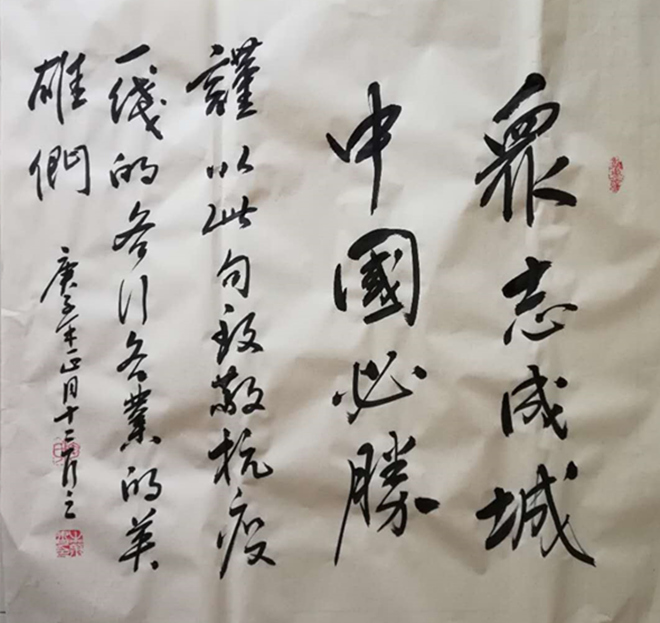 衆志成城
中國必勝
謹以此句致敬抗疫
一綫的各行各業的英
雄們
庚子年正月十二